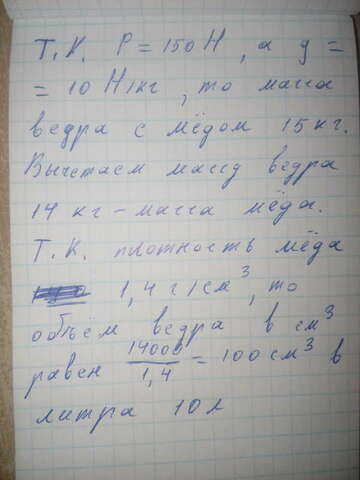 Т.К. P = 150 Н, а g =
= 10 Н/кг, то масса
ведра с мёдом 15 кг.
Вычетаем массу ведра
14 кг – масса мёда.
Т.К. плотность мёда
1,4 г/см³, то
объём ведра в см³
равен 14000/1,4 = 100 см³ в
литра 10 л